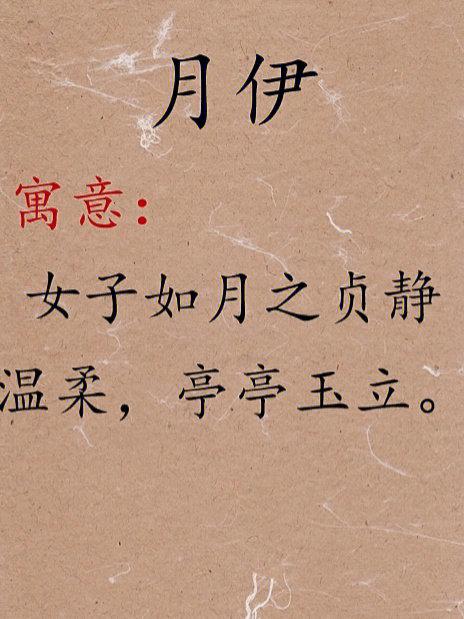 月伊
寓意：
女子如月之贞静
温柔，亭亭玉立。